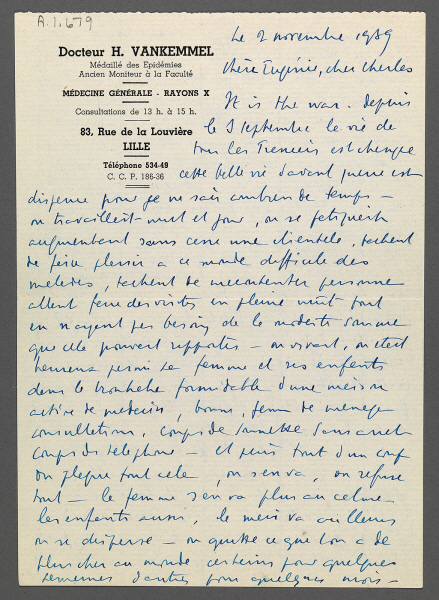 A.1.679
Le 2 novembre 1939
Docteur H. VANKEMMEL
Médaillé des Epidémies
Ancien Moniteur à la Faculté
MÉDECINE GÉNÉRALE - RAYONS X
Consultations de 13 h. à 15 h.
83, Rue de la Louvière
LILLE
Téléphone 534-49
C. C. P. 186-36
chère Eugénie, cher Charles
It is the war. depuis
le 3 septembre la vie de
tous les Francais est changée
cette belle vie d'avant guerre est
disparue pour je ne sais combien de temps —
on travaillait nuit et jour, on se fatiguait
augmentant sans cesse une clientèle, tachant
de faire plaisir a ce monde difficile des
malades, tachant de mecontenter personne
allant faire des visites en pleine nuit tout
en n'ayant pas besoin de la modeste somme
que cela pouvait rapporter — on vivait, on etait
heureux parmi sa femme et ses enfants
dans le brouhaha formidable d'une maison
active de medecin, bonnes, femme de menage
consultations, coups de sonnette sans arret
coups de telephone — et puis tout d'un coup
on plaque tout cela, on s'en va, on refuse
tout — la femme s'en va plus au calme
les enfants aussi, le mari va ailleurs
on se disperse — on quitte ce que l'on a de
plus cher au monde certains pour quelques
semaines d'autres pour quelques mois —